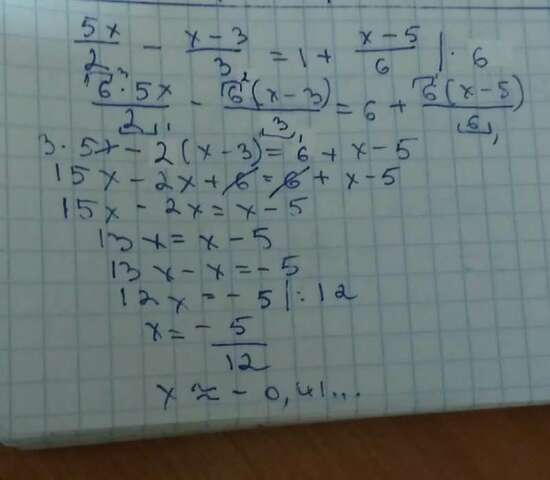 5x/2 - x-3/3 = 1 + x-5/6 | · 6
6·5x/2 - 6(x-3)/3 = 6 + 6(x-5)/6
3·5x - 2(x-3) = 6 + x-5
15x - 2x + 6 = 6 + x-5
15x - 2x = x - 5
13x = x - 5
13x - x = -5
12x = -5 | : 12
x = - 5/12
x ≈ -0,41...